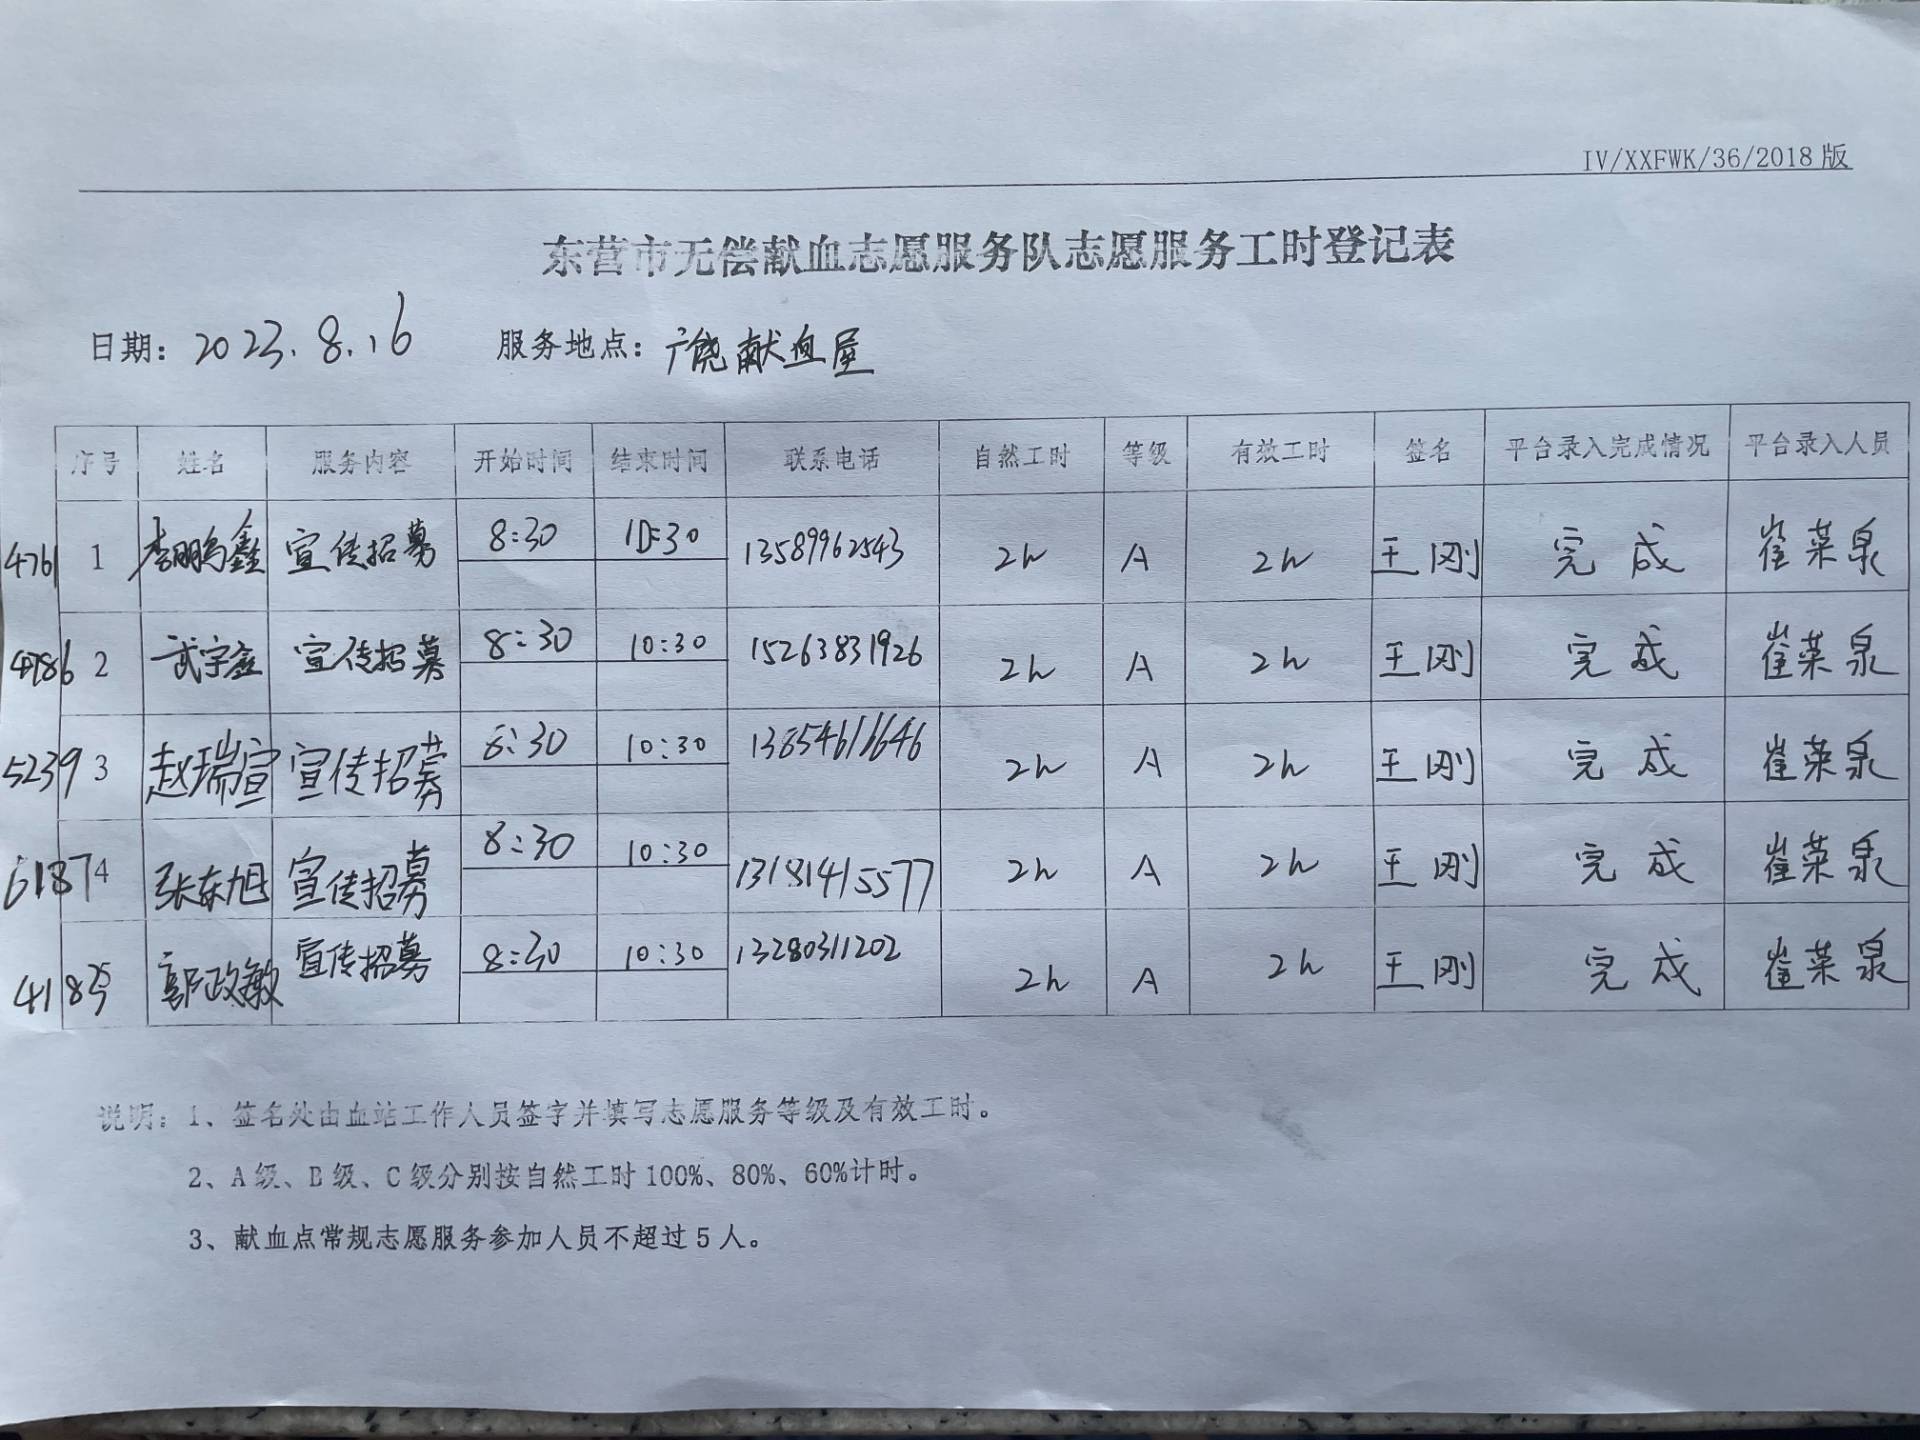 IV/XXFWK/36/2018版
东营市无偿献血志愿服务队志愿服务工时登记表
日期：2023.8.16 服务地点：广饶献血屋
序号 姓名 服务内容 开始时间 结束时间 联系电话 自然工时 等级 有效工时 签名 平台录入完成情况 平台录入人员
4761 1 李鹏鑫 宣传招募 8:30 10:30 13589962543 2h A 2h 王刚 完成 崔菜泉
4786 2 武宇鑫 宣传招募 8:30 10:30 15263831926 2h A 2h 王刚 完成 崔菜泉
5239 3 赵瑞宣 宣传招募 8:30 10:30 13854611646 2h A 2h 王刚 完成 崔菜泉
6187 4 张东旭 宣传招募 8:30 10:30 13181415577 2h A 2h 王刚 完成 崔菜泉
5 郭政敏 宣传招募 8:30 10:30 13280311202 2h A 2h 王刚 完成 崔菜泉
说明：1、签名处由血站工作人员签字并填写志愿服务等级及有效工时。
2、A级、B级、C级分别按自然工时100%、80%、60%计时。
3、献血点常规志愿服务参加人员不超过5人。